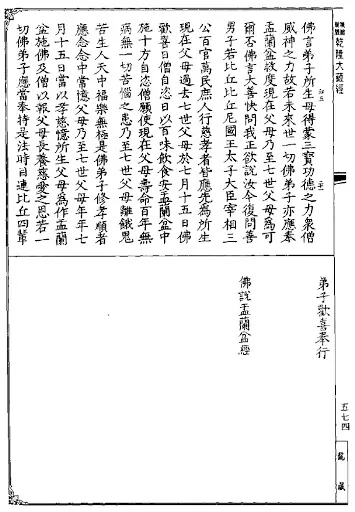 乾隆大藏經
佛言弟子所生母得蒙三寶功德之力衆僧
威神之力故若未來世一切佛弟子亦應奉
盂蘭盆救度現在父母乃至七世父母為可
爾否佛言大善快問我正欲說汝今復問善
男子若比丘比丘尼國王太子大臣宰相三
公百官萬民庶人行慈孝者皆應先為所生
現在父母過去七世父母於七月十五日佛
歡喜日僧自恣日以百味飲食安盂蘭盆中
施十方自恣僧願使現在父母壽命百年無
病無一切苦惱之患乃至七世父母離餓鬼
苦生人天中福樂無極是佛弟子修孝順者
應念念中常憶父母乃至七世父母年年七
月十五日當以孝慈憶所生父母為作盂蘭
盆施佛及僧以報父母長養慈愛之恩若一
切佛弟子應當奉持是法時目連比丘四輩
弟子歡喜奉行
佛說盂蘭盆經
五七四
龍藏